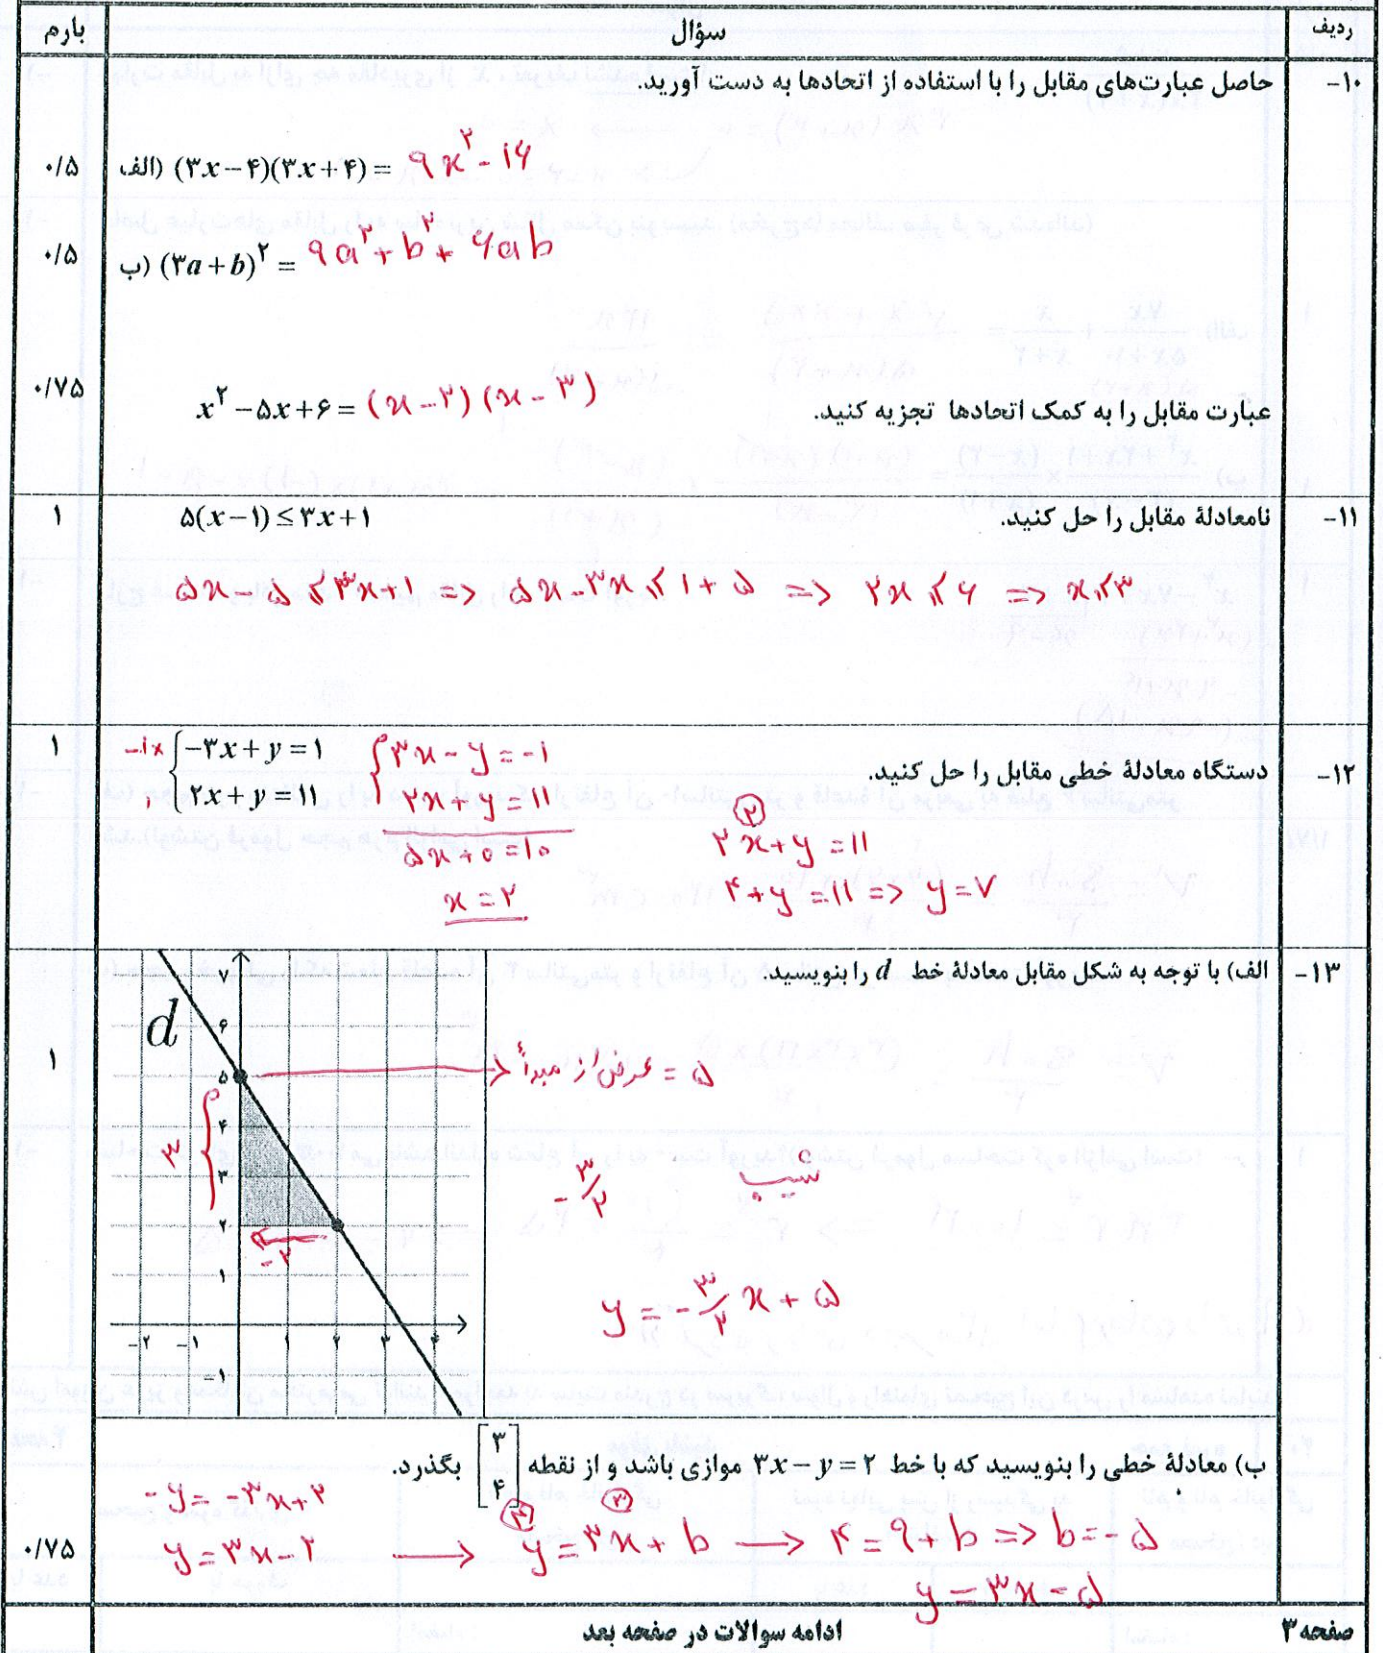 ردیف سؤال بارم
۱۰- حاصل عبارت‌های مقابل را با استفاده از اتحادها به دست آورید.
الف) (۳x-۴)(۳x+۴) = ۹x^۲ - ۱۶ ۰/۵
ب) (۳a+b)^۲ = ۹a^۲ + b^۲ + ۶ab ۰/۵
عبارت مقابل را به کمک اتحادها تجزیه کنید. x^۲ - ۵x + ۶ = (x - ۲)(x - ۳) ۰/۷۵
۱۱- نامعادلهٔ مقابل را حل کنید. ۵(x-۱) ≤ ۳x+۱ ۱
۵x - ۵ ≤ ۳x+۱ => ۵x - ۳x ≤ ۱ + ۵ => ۲x ≤ ۶ => x ≤ ۳
۱۲- دستگاه معادلهٔ خطی مقابل را حل کنید. ۱
-۱× { -۳x + y = ۱ { ۳x - y = -۱
۲x + y = ۱۱ ۲x + y = ۱۱
۵x + ۰ = ۱۰
x = ۲
(۲)
۲x + y = ۱۱
۴ + y = ۱۱ => y = ۷
۱۳- الف) با توجه به شکل مقابل معادلهٔ خط d را بنویسید. ۱
d
۷
۶
۵
۴
۳
۲
۱
-۲ -۱ ۱ ۲ ۳ ۴
-۱
۳
-۲
عرض از مبدأ = ۵
شیب -۳/۲
y = -۳/۲ x + ۵
ب) معادلهٔ خطی را بنویسید که با خط ۳x - y = ۲ موازی باشد و از نقطه [۳ ۴] بگذرد. ۰/۷۵
-y = -۳x + ۲
(۴) (۳)
y = ۳x - ۲ → y = ۳x + b → ۴ = ۹ + b => b = -۵
y = ۳x - ۵
صفحه ۳ ادامه سوالات در صفحه بعد